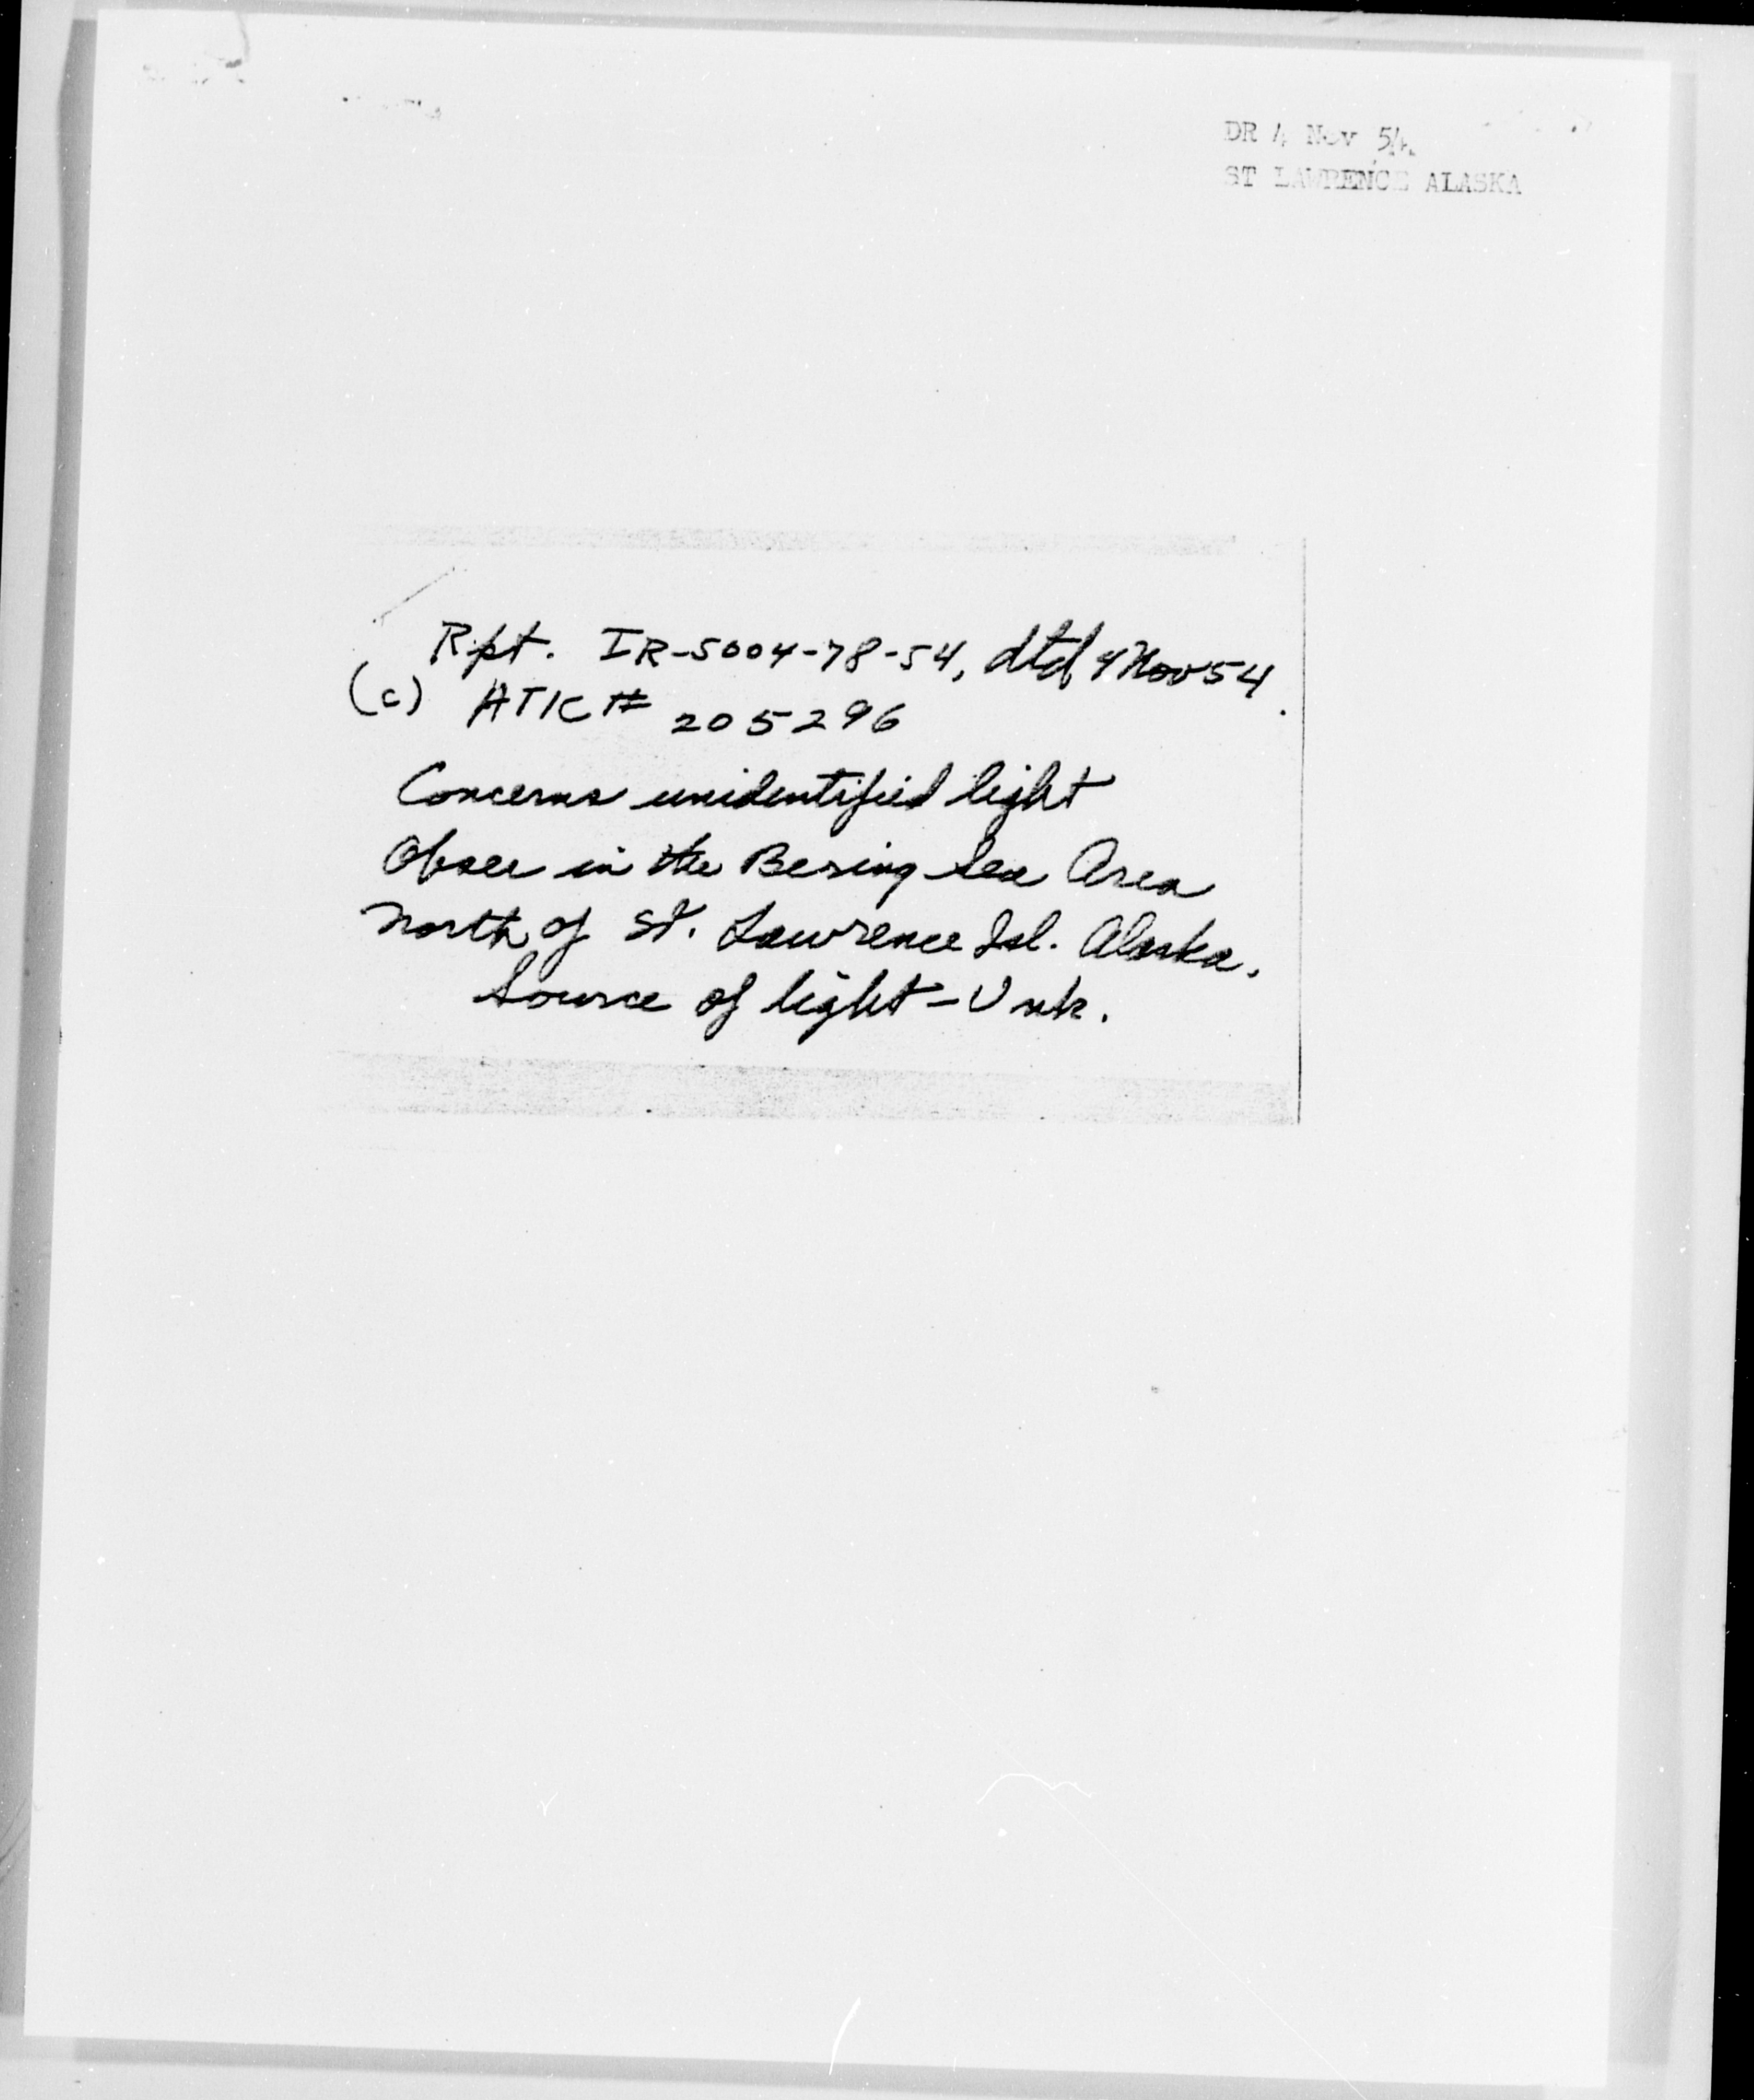 DR 4 Nov 54
ST LAWRENCE ALASKA
Rpt. IR-5004-78-54, dtd 4 Nov 54.
(c) ATIC # 205296
Concerns unidentified light
Obser in the Bering Sea Area
North of St. Lawrence Isl. Alaska.
Source of light - Unk.